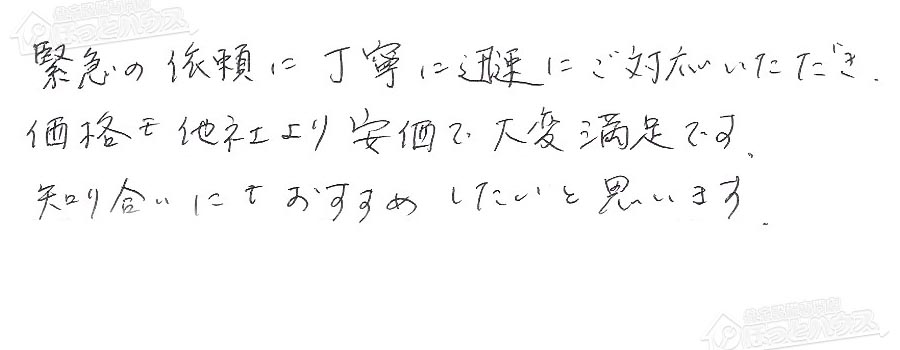 緊急の依頼に丁寧に迅速にご対応いただき、
価格も他社より安価で大変満足です。
知り合いにもおすすめしたいと思います。
ほっとハウス
ほっとハウス